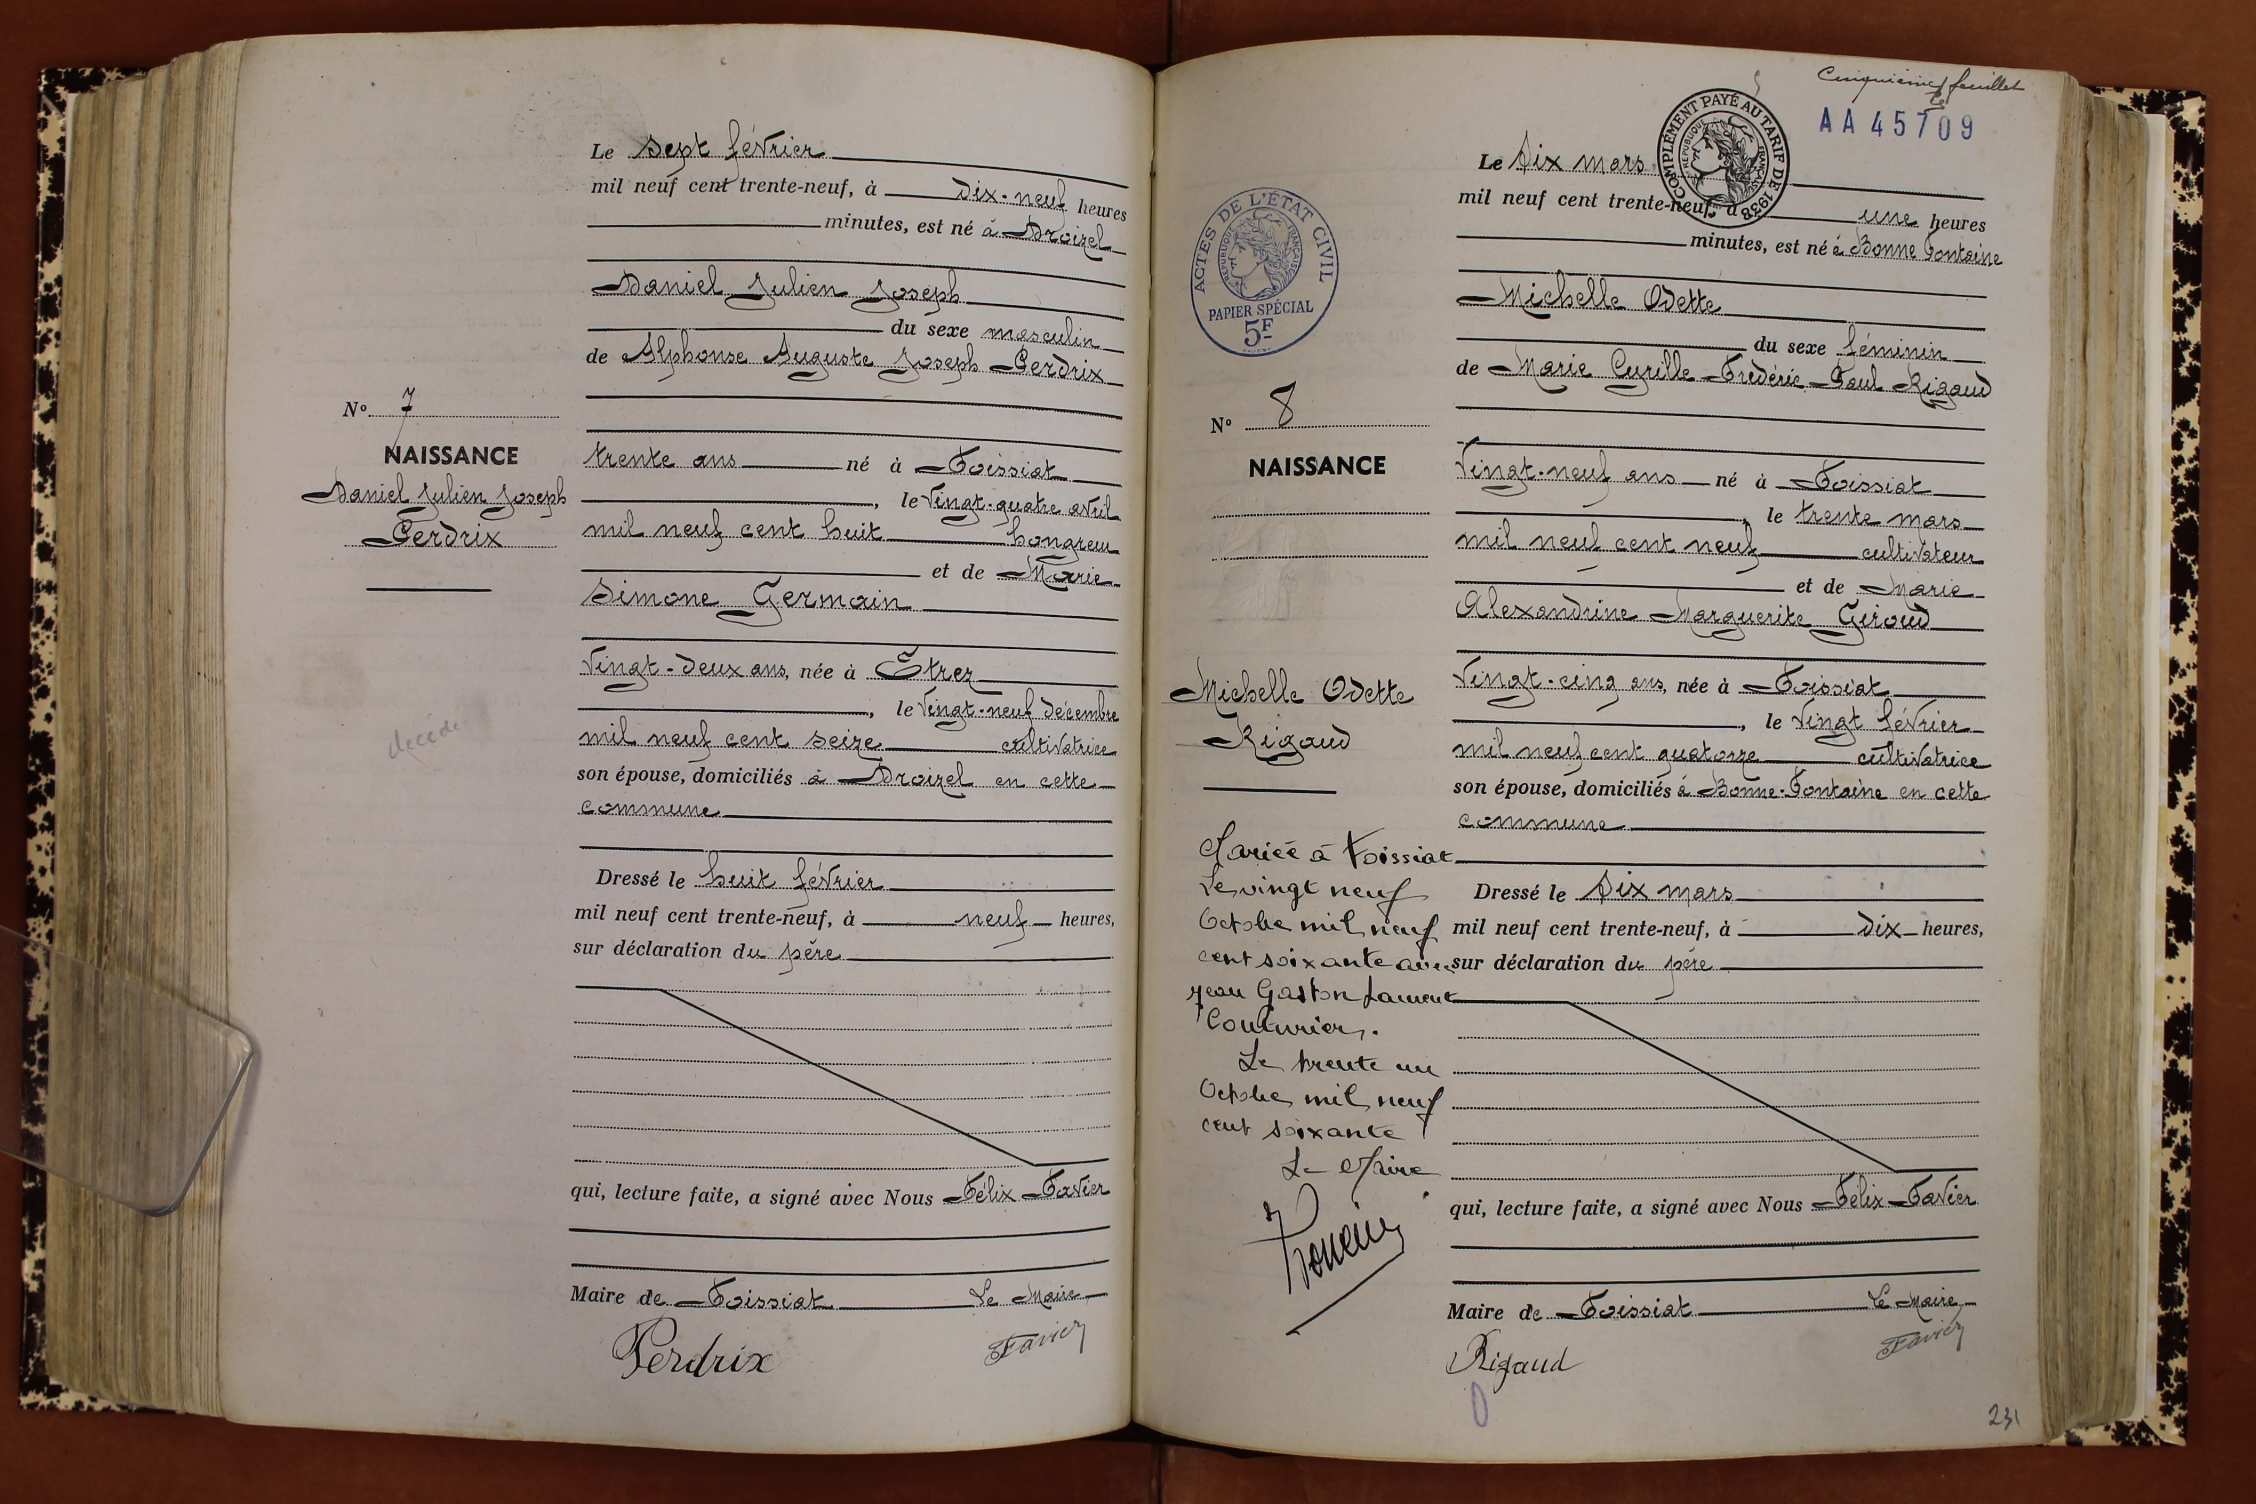 Le sept février
mil neuf cent trente-neuf, à dix-neuf heures
minutes, est né à Droizel
Daniel Julien Joseph
du sexe masculin
de Alphonse Auguste Joseph Perdrix
N° 7
NAISSANCE
Daniel Julien Joseph
Perdrix
décédé
trente ans né à Foissiat
, le vingt-quatre avril
mil neuf cent huit hongreur
et de Marie
Simone Germain
vingt-deux ans, née à Etrez
, le vingt-neuf décembre
mil neuf cent seize cultivatrice
son épouse, domiciliés à Droizel en cette
commune
Dressé le huit février
mil neuf cent trente-neuf, à neuf heures,
sur déclaration du père
qui, lecture faite, a signé avec Nous Félix Favier
Maire de Foissiat Le Maire
Perdrix Favier
Cinquième feuillet
AA 45709
COMPLÉMENT PAYÉ AU TARIF DE 1938
RÉPUBLIQUE FRANÇAISE
ACTES DE L'ÉTAT CIVIL
RÉPUBLIQUE FRANÇAISE
PAPIER SPÉCIAL
5F
Le dix mars
mil neuf cent trente-neuf, à une heures
minutes, est né à Bonne Fontaine
Michelle Odette
du sexe féminin
de Marie Cyrille Frédéric Paul Rigaud
N° 8
NAISSANCE
Michelle Odette
Rigaud
Mariée à Foissiat
Le vingt neuf
Octobre mil neuf
cent soixante avec
Jean Gaston Laurent
Couturier.
Le trente un
Octobre mil neuf
cent soixante
Le Maire
vingt-neuf ans né à Foissiat
, le trente mars
mil neuf cent neuf cultivateur
et de Marie
Alexandrine Marguerite Giroud
vingt-cinq ans, née à Foissiat
, le vingt février
mil neuf cent quatorze cultivatrice
son épouse, domiciliés à Bonne-Fontaine en cette
commune
Dressé le dix mars
mil neuf cent trente-neuf, à dix heures,
sur déclaration du père
qui, lecture faite, a signé avec Nous Félix Favier
Maire de Foissiat Le Maire
Rigaud Favier
231